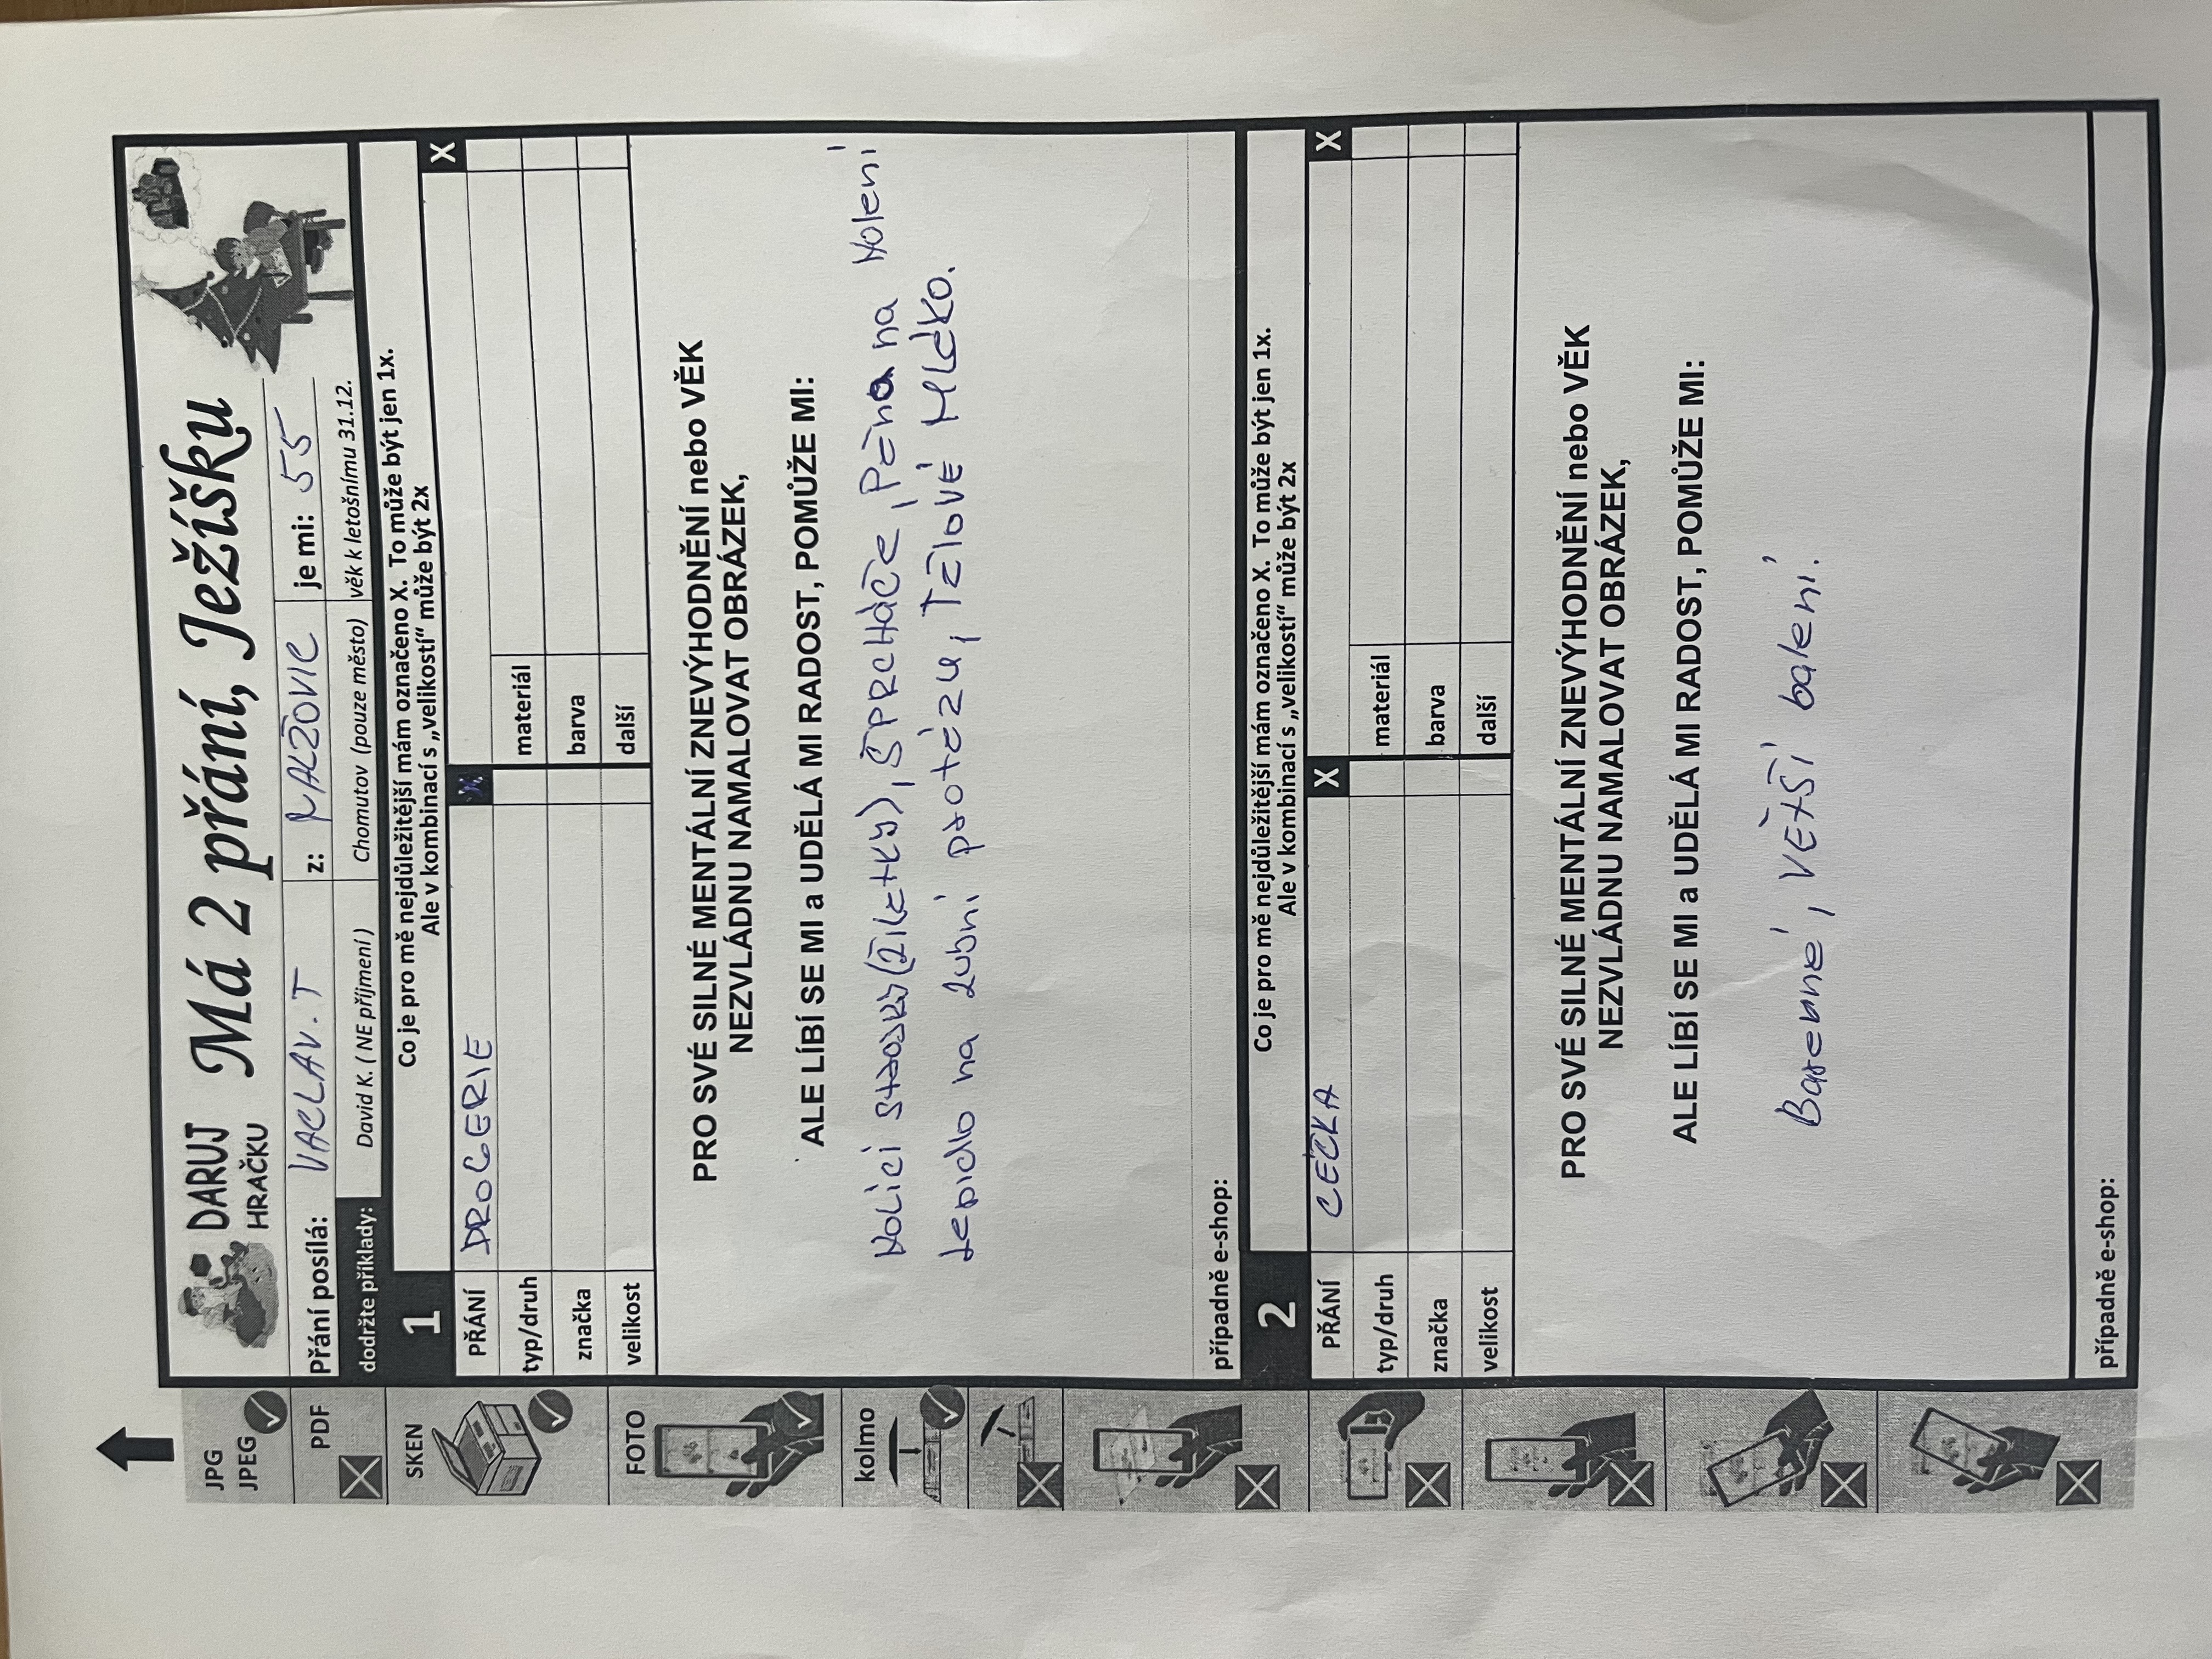 DARUJ
HRAČKU
Má 2 přání, Ježíšku
Přání posílá: VACLAV. T z: MALŽOVIC je mi: 55
dodržte příklady: David K. ( NE příjmení ) Chomutov (pouze město) věk k letošnímu 31.12.
1 Co je pro mě nejdůležitější mám označeno X. To může být jen 1x.
Ale v kombinací s „velikostí“ může být 2x
X
PŘÁNÍ DROGERIE
typ/druh materiál
značka barva
velikost další
PRO SVÉ SILNÉ MENTÁLNÍ ZNEVÝHODNĚNÍ nebo VĚK
NEZVLÁDNU NAMALOVAT OBRÁZEK,
ALE LÍBÍ SE MI a UDĚLÁ MI RADOST, POMŮŽE MI:
Holící strojky (žiletky), SPRCHÁČE, Pěna na Holení
Lepidlo na zubní protézu, Tělové MLÉKO.
případně e-shop:
2 Co je pro mě nejdůležitější mám označeno X. To může být jen 1x.
Ale v kombinací s „velikostí“ může být 2x
PŘÁNÍ CÉČKA X X
typ/druh materiál
značka barva
velikost další
PRO SVÉ SILNÉ MENTÁLNÍ ZNEVÝHODNĚNÍ nebo VĚK
NEZVLÁDNU NAMALOVAT OBRÁZEK,
ALE LÍBÍ SE MI a UDĚLÁ MI RADOST, POMŮŽE MI:
Barevné, VĚTŠÍ balení.
případně e-shop:
JPG
JPEG
PDF
SKEN
FOTO
kolmo